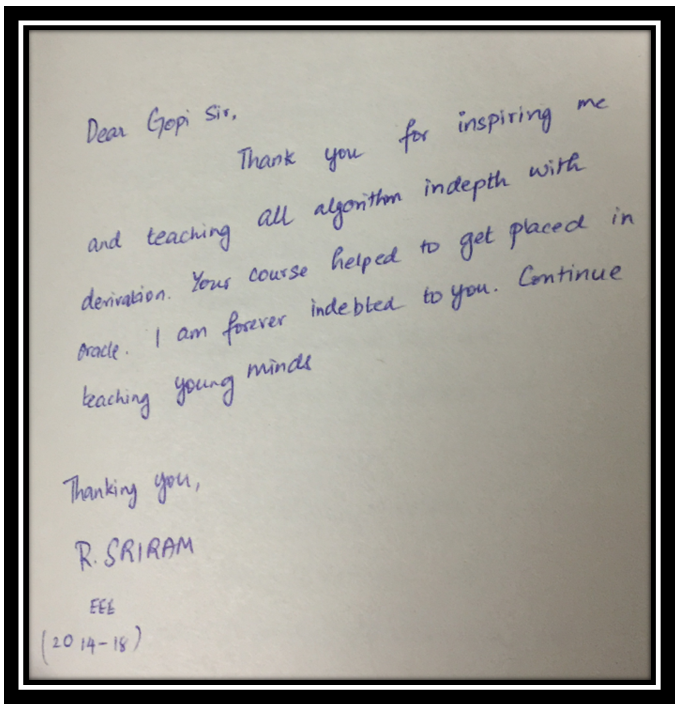 Dear Gopi Sir,
Thank you for inspiring me
and teaching all algorithm indepth with
derivation. Your course helped to get placed in
oracle. I am forever indebted to you. Continue
teaching young minds
Thanking you,
R. SRIRAM
EEE
(2014-18)